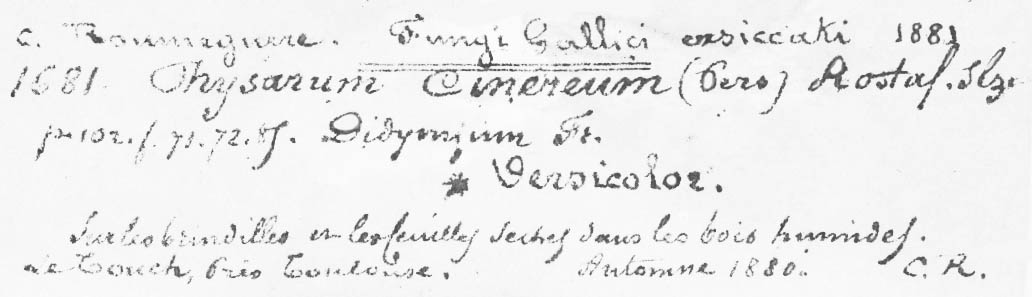 C. Roumeguere. Fungi Gallici exsiccati 1881
1681. Physarum Cinereum (Pers) Rostaf.
p. 102. f. 71. 72. 85. Didymium Fr.
* Versicolor.
Sur les brindilles et les feuilles seches dans les bois humides.
Le Touch, près Toulouse. Automne 1880. C. R.